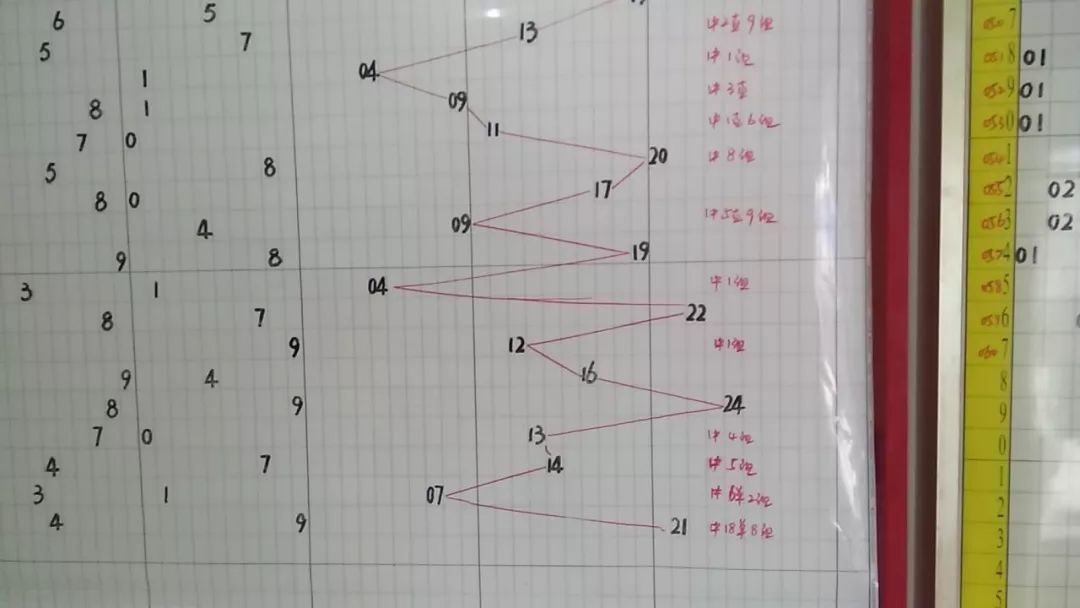 6 5 13 中2直9组
5 7 04 中1组 8 01
1 09 中3直 9 01
8 1 11 中1直6组 0 01
7 0 20 中8组 1
5 8 17 2 02
8 0 09 中5直9组 3 02
4 19 4 01
9 8 04 中1组 5
3 1 22 6
8 7 12 中1组 7
9 16 8
9 4 24 9
8 9 13 中4组 0
7 0 14 中5组 1
4 7 07 中6单2组 2
3 1 21 中18单8组 3
4 9 4
5